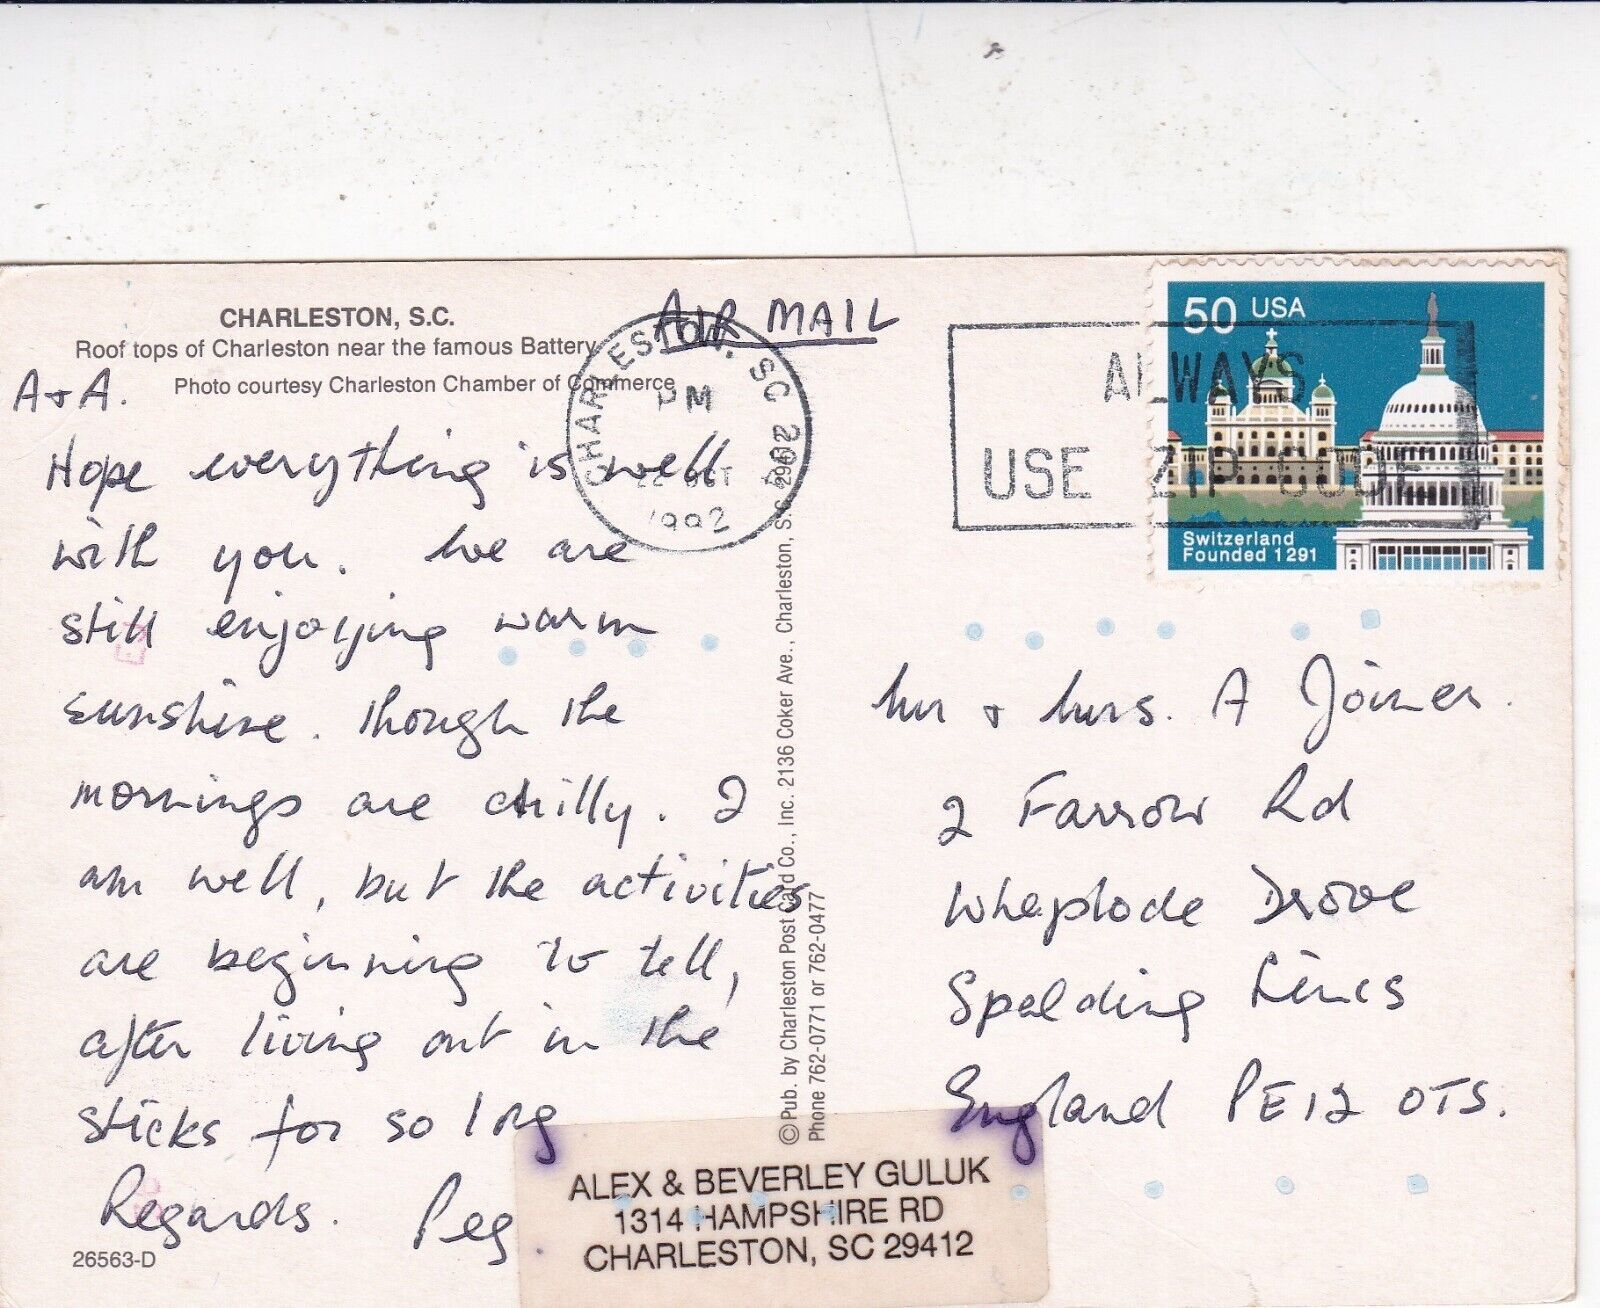 CHARLESTON, S.C.
Roof tops of Charleston near the famous Battery
Photo courtesy Charleston Chamber of Commerce
AIR MAIL
CHARLESTON, SC 294
PM
OCT
1992
ALWAYS
USE ZIP CODE
50 USA
Switzerland
Founded 1291
A + A.
Hope everything is well
with you. We are
still enjoying warm
sunshine. Though the
mornings are chilly. I
am well, but the activities
are beginning to tell,
after living out in the
sticks for so long
Regards. Peg.
26563-D
©Pub. by Charleston Post Card Co., Inc. 2136 Coker Ave., Charleston, S.C. 29412
Phone 762-0771 or 762-0477
Mr + Mrs. A Joiner.
2 Farrow Rd
Whaplode Drove
Spalding Lincs
England PE12 OTS.
ALEX & BEVERLEY GULUK
1314 HAMPSHIRE RD
CHARLESTON, SC 29412